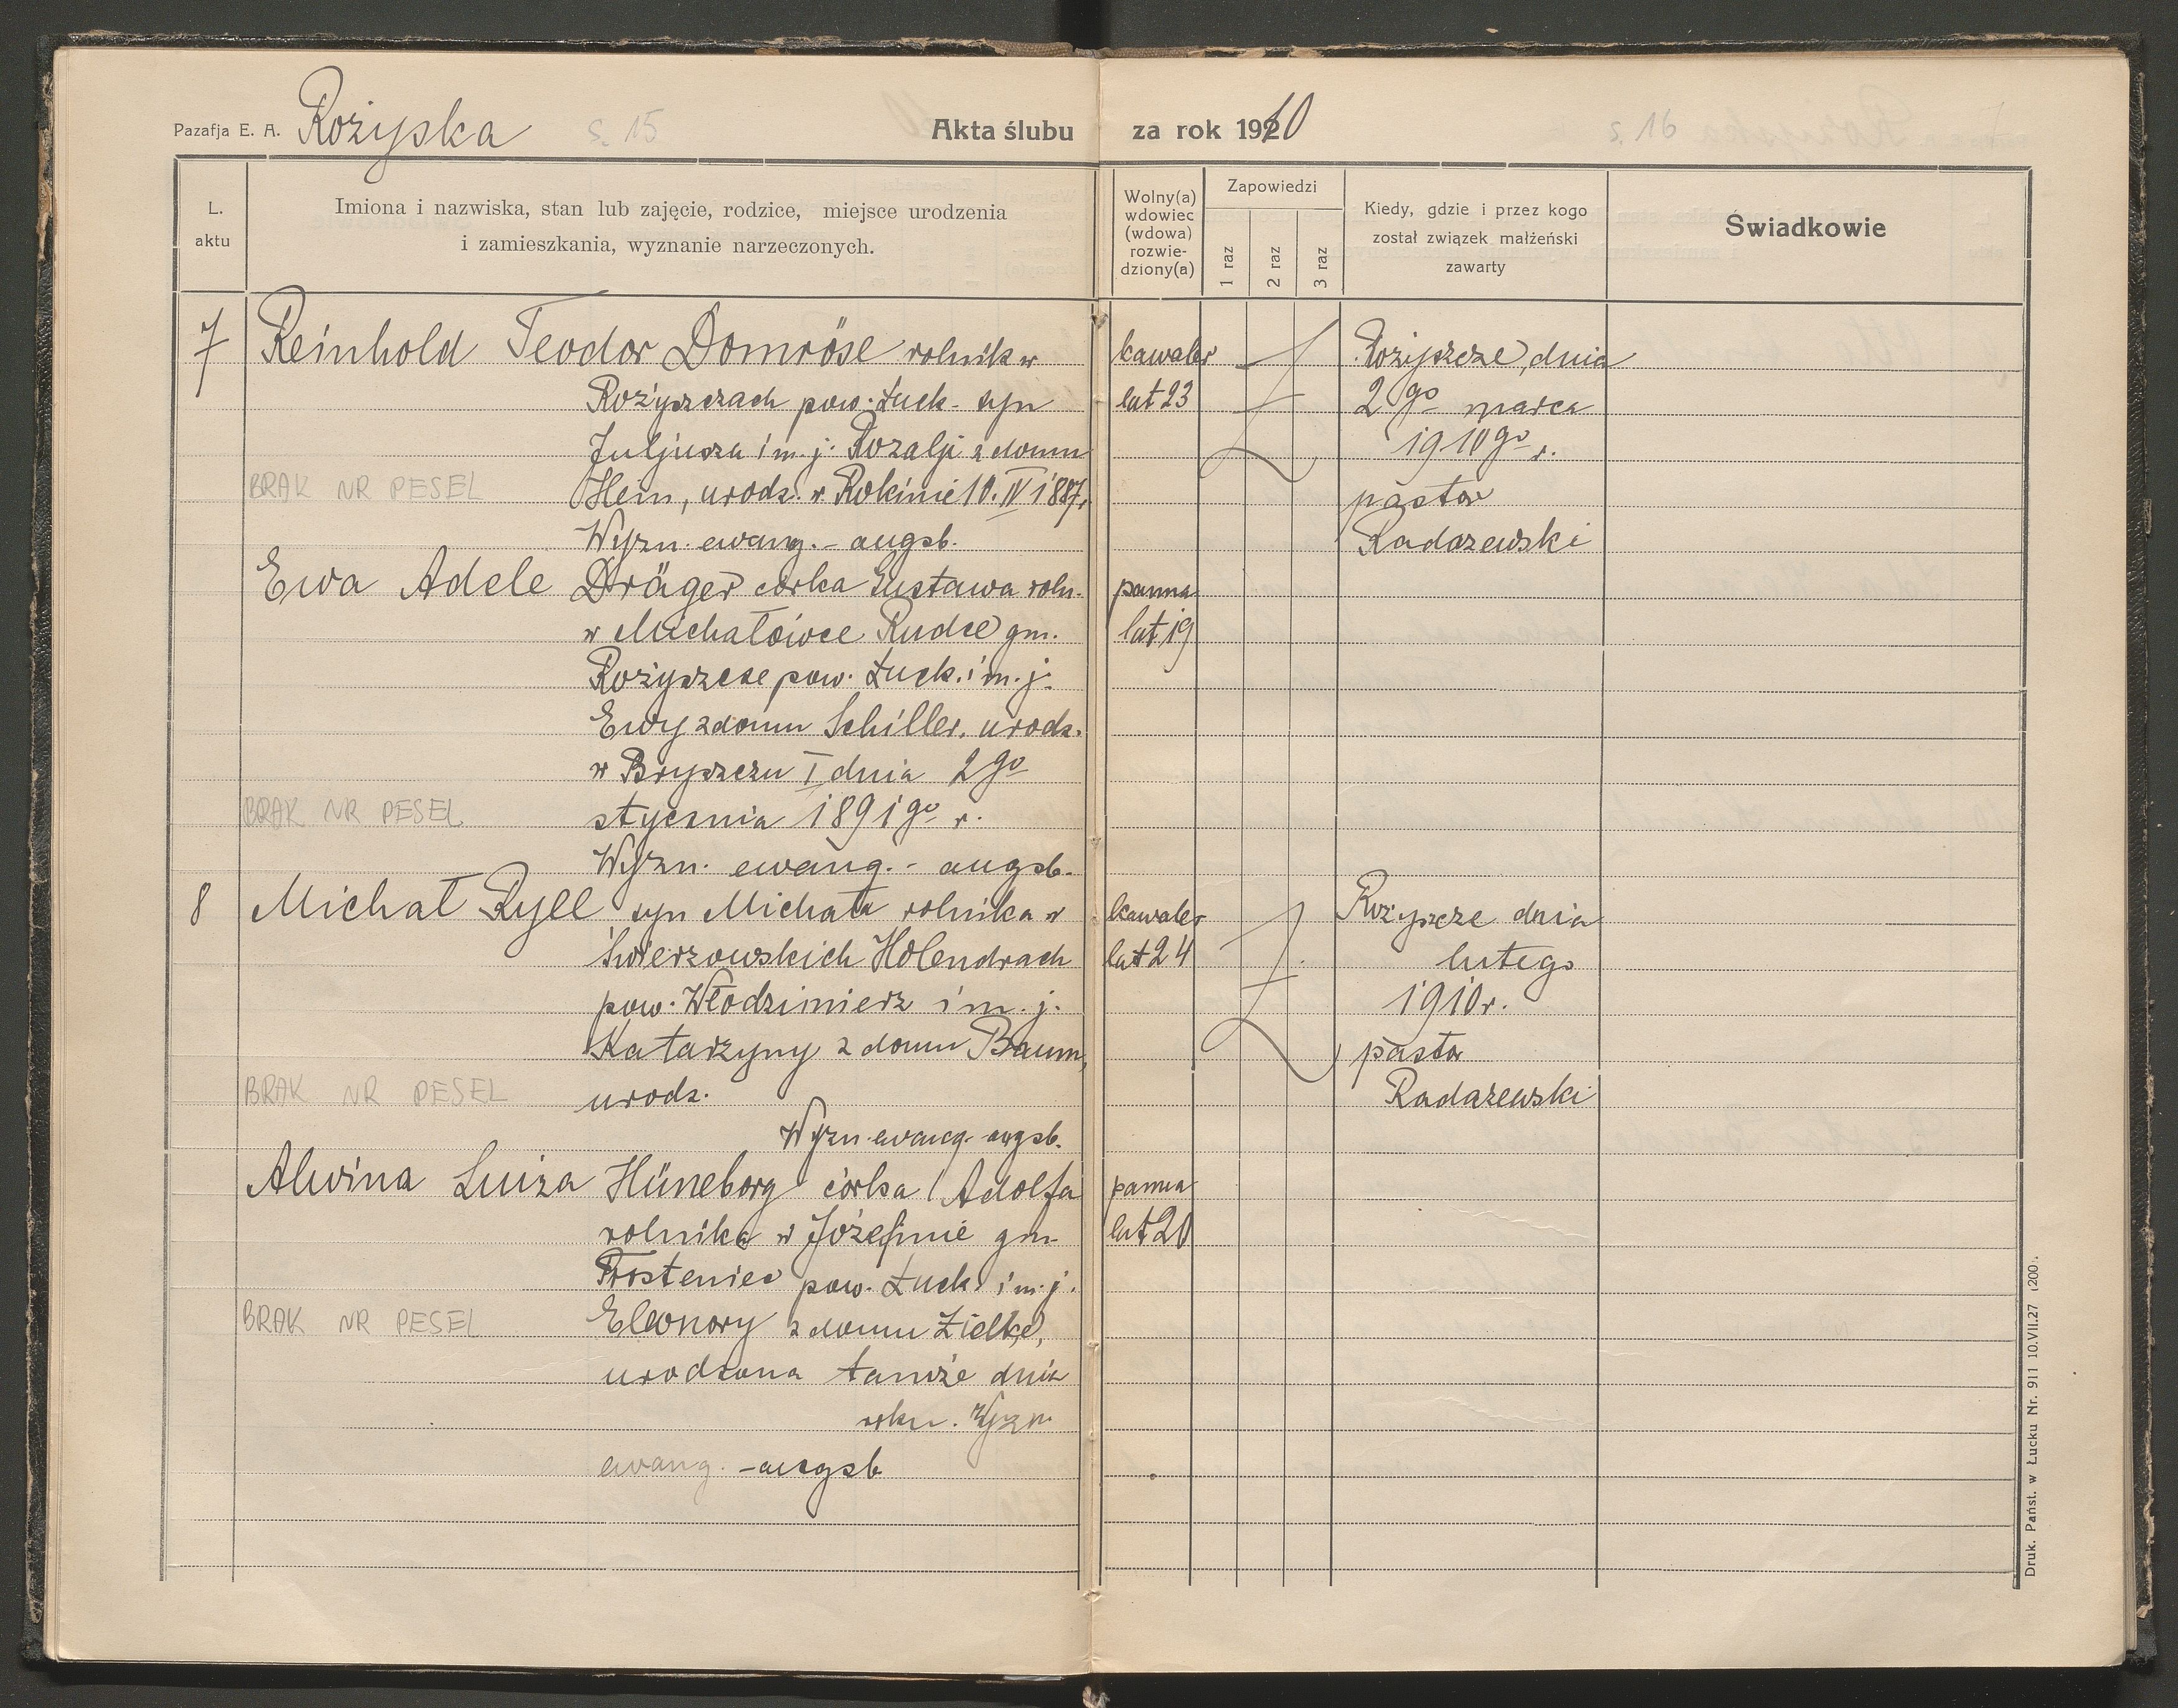 Pazafja E. A. Rożyska s. 15 Akta ślubu za rok 1910 s. 16
L. aktu
Imiona i nazwiska, stan lub zajęcie, rodzice, miejsce urodzenia
i zamieszkania, wyznanie narzeczonych.
Wolny(a)
wdowiec
(wdowa)
rozwie-
dziony(a)
Zapowiedzi
1 raz
2 raz
3 raz
Kiedy, gdzie i przez kogo
został związek małżeński
zawarty
Świadkowie
7 Reinhold Teodor Domröse rolnik w
Rożyszczach pow. Łuck. syn
Juljusza i m. j. Rozalji z domu
BRAK NR PESEL Hein, urodz. w Rokinie 10. IV 1887r.
Wyzn. ewang. - augsb.
kawaler
lat 23
Rożyszcze, dnia
2go marca
1910go r.
pastor
Radaszewski
Ewa Adele Dräger córka Gustawa roln.
w Michałówce Rudce gm.
Rożyszcze pow. Łuck. i m. j.
Ewy z domu Schiller. urodz.
w Bryszczu I dnia 2go
BRAK NR PESEL stycznia 1891go r.
Wyzn. ewang. - augsb.
panna
lat 19
8 Michał Ryll syn Michała rolnika w
Świerzowskich Holendrach
pow. Włodzimierz i m. j.
Katarzyny z domu Baum,
BRAK NR PESEL urodz.
Wyzn. ewang. augsb.
kawaler
lat 24
Rożyszcze dnia
lutego
1910 r.
pastor
Radaszewski
Alwina Luiza Hüneborg córka Adolfa
rolnika w Józefinie gm.
Trosteniec pow. Łuck. i m. j.
BRAK NR PESEL Eleonory z domu Zielke,
urodzona tamże dnia
roku. Wyzn.
ewang. - augsb
panna
lat 20
Druk. Państ. w Łucku Nr. 911 10.VII.27 (200).